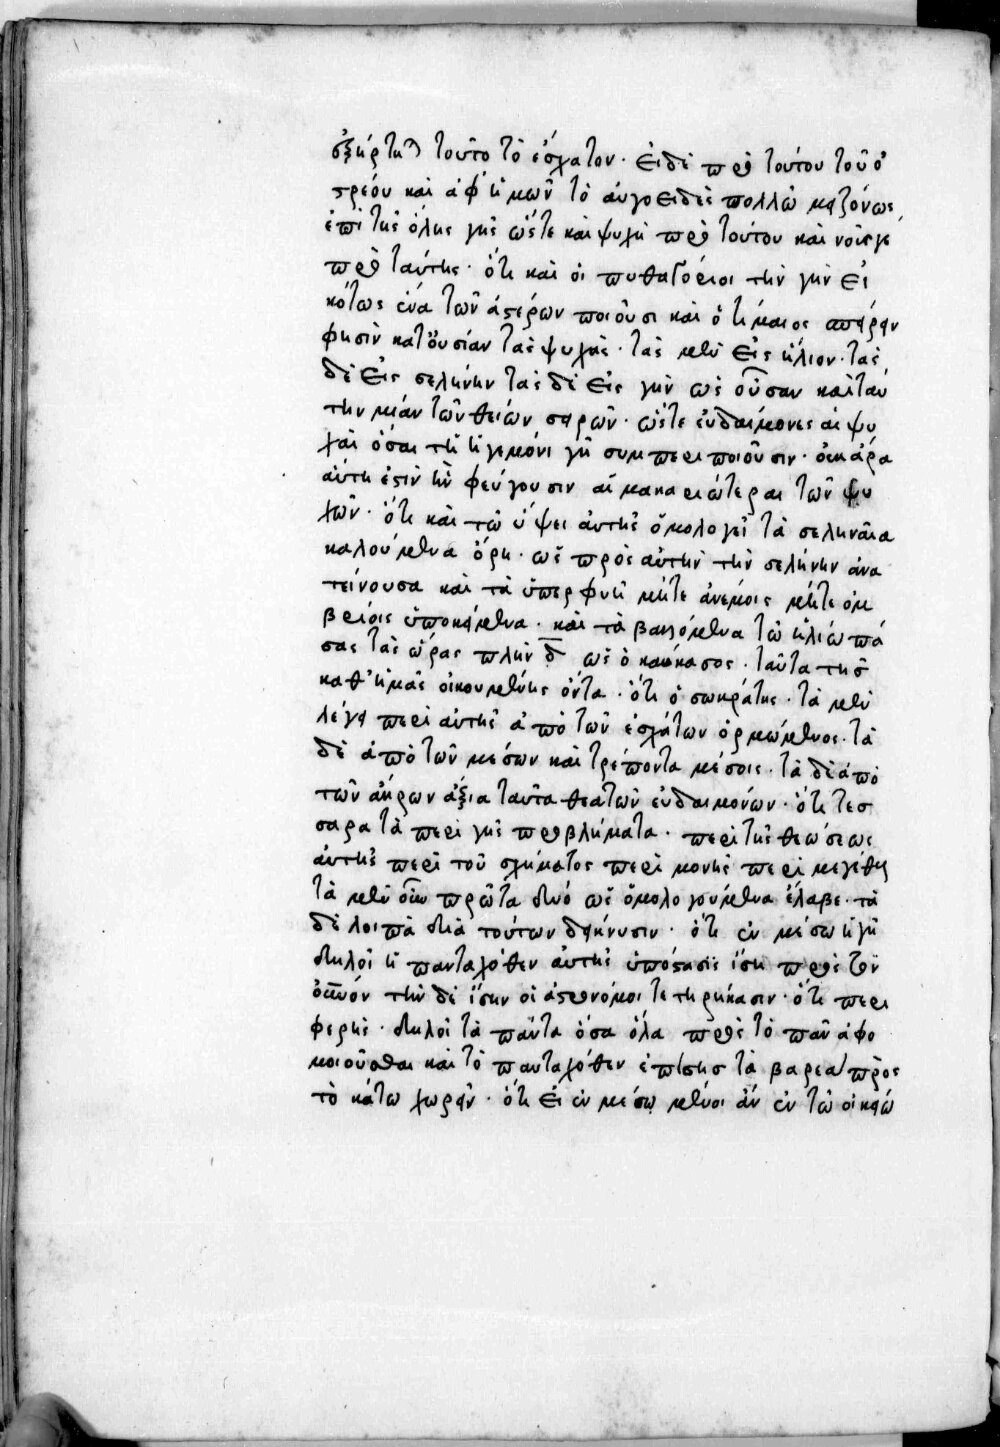 ἐξήρτηται τοῦτο τὸ ἔσχατον. εἰ δὲ πρὸ τούτου τοῦ ὀ
στρέου καὶ ἀφ' ἡμῶν τὸ αὐγοειδὲς πολλῷ μειζόνως
ἐπὶ τῆς ὅλης γῆς ὥστε καὶ ψυχὴ πρὸ τούτου καὶ νοῦς γε
πρὸ ταύτης. ὅτι καὶ οἱ πυθαγόρειοι τὴν γῆν εἰ
κότως ἕνα τῶν ἀστέρων ποιοῦσι καὶ ὁ τίμαιος σπεῖραι
φησὶν κατ' οὐσίαν τὰς ψυχὰς. τὰς μὲν εἰς ἥλιον. τὰς
δὲ εἰς σελήνην τὰς δὲ εἰς γῆν ὡς οὖσαν καὶ ταύ
την μίαν τῶν θείων σειρῶν. ὥστε εὐδαίμονες αἱ ψυ
χαὶ ὅσαι τῇ ἡγεμόνι γῇ συμπεριποιοῦσιν. οὐκ ἄρα
αὕτη ἐστὶν ἣν φεύγουσιν αἱ μακαριώτεραι τῶν ψυ
χῶν. ὅτι καὶ τῷ ὕψει αὐτῆς ὁμολογεῖ τὰ σεληναῖα
καλούμενα ὄρη. ὡς πρὸς αὐτὴν τὴν σελήνην ἀνα
τείνουσα καὶ τὰ ὑπερφυῆ μήτε ἀνέμοις μήτε ὀμ
βρίοις ὑποκείμενα. καὶ τὰ βαλλόμενα τῷ ἡλίῳ πά
σας τὰς ὥρας πλὴν δ ὡς ὁ καύκασος. ταῦτα τῆς
καθ' ἡμᾶς οἰκουμένης ὄντα. ὅτι ὁ σωκράτης. τὰ μὲν
λέγει περὶ αὐτῆς ἀπὸ τῶν ἐσχάτων ὁρμώμενος. τὰ
δὲ ἀπὸ τῶν μέσων καὶ τρέποντα μέσοις. τὰ δὲ ἀπὸ
τῶν ἄκρων ἄξια ταῦτα θεατῶν εὐδαιμόνων. ὅτι τεσ
σαρα τὰ περὶ γῆς προβλήματα. περὶ τῆς θεώσεως
αὐτῆς περὶ τοῦ σχήματος περὶ μονῆς περὶ μεγέθους
τὰ μὲν οὖν πρῶτα δύο ὡς ὁμολογούμενα ἔλαβε. τὰ
δὲ λοιπὰ διὰ τούτων δείκνυσιν. ὅτι ἐν μέσῳ ἡ γῆ
δηλοῖ ἡ πανταχόθεν αὐτῆς ὑπόστασις ἴση πρὸς τὸν
οὐρανόν τὴν δὲ ἴσην οἱ ἀστρονόμοι τετηρήκασιν. ὅτι περι
φερής. δηλοῖ τὰ πάντα ὅσα ὅλα πρὸς τὸ πᾶν ἀφο
μοιοῦσθαι καὶ τὸ πανταχόθεν ἐπίσης τὰ βαρέα πρὸς
τὸ κάτω χωρεῖν. ὅτι εἰ ἐν μέσῳ μένοι ἂν ἐν τῷ οἰκείῳ